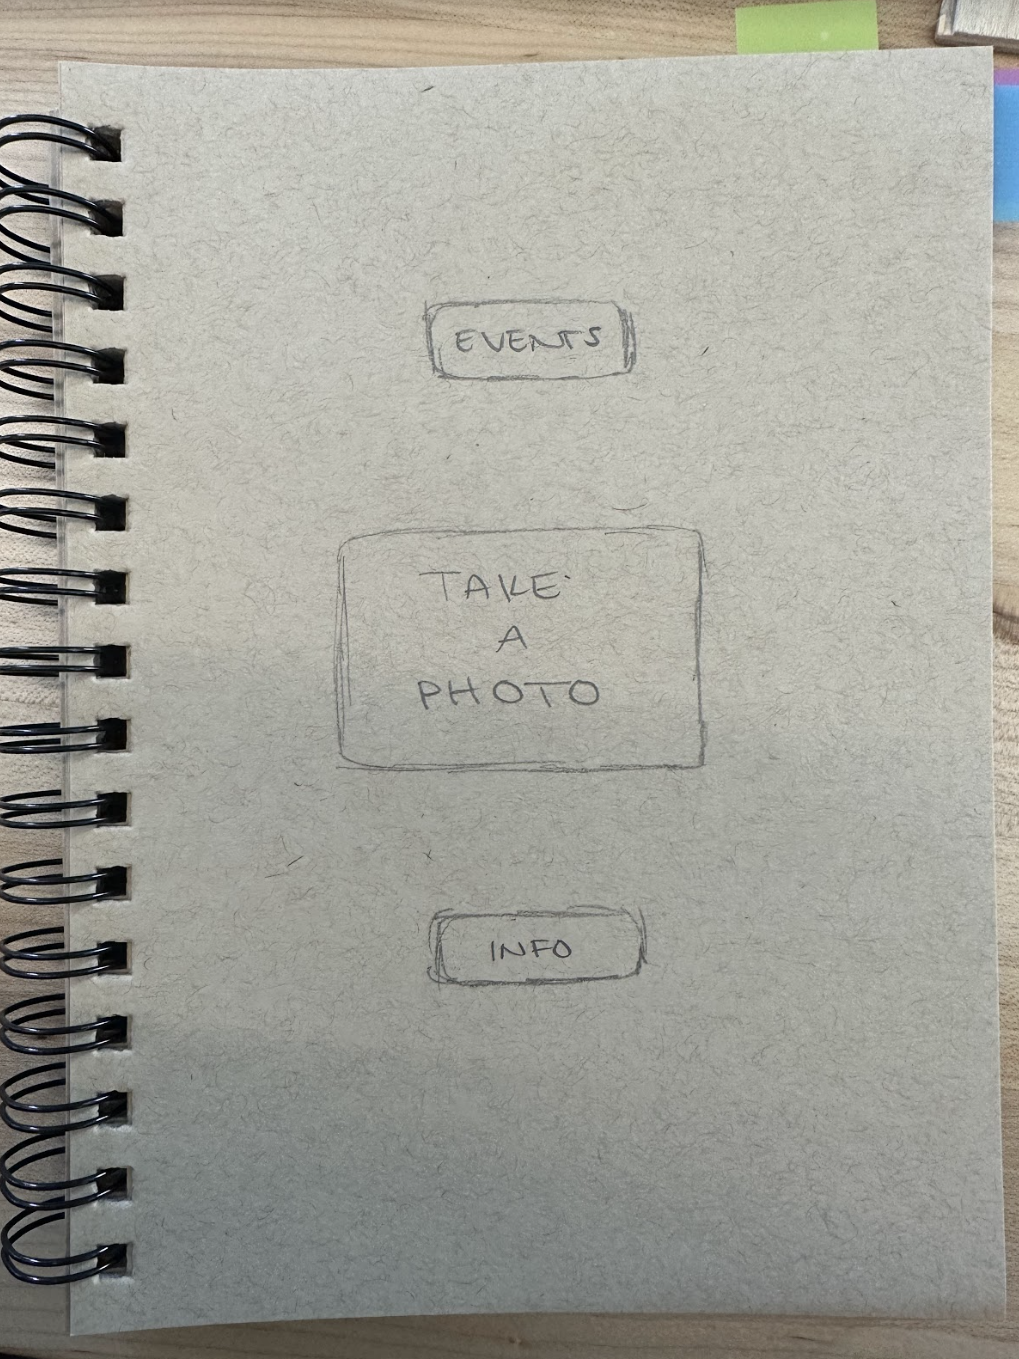 EVENTS
TAKE
A
PHOTO
INFO